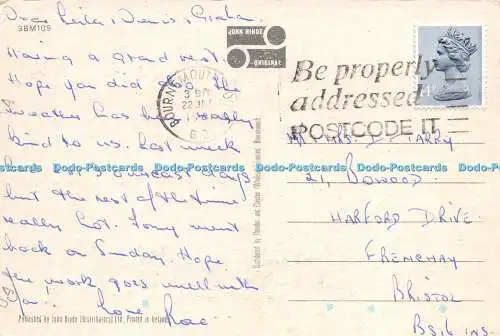 Dear Leila, Dennis, Graham.
9BM109
Having a grand rest.
Hope you did too the
weather has been really
kind to us. last week
but the rest of the time
really hot. Tony went
back on Sunday. Hope
the work goes well with
you. Love
Published by John Hinde (Distributors) Ltd., Printed in Ireland
JOHN HINDE
BOURNEMOUTH
22 JU
Be properly
addressed
POSTCODE IT
MR & MRS. D. PARRY
21, BOWOOD
HARFORD DRIVE
FRENCHAY
BRISTOL
Dodo-Postcards Dodo-Postcards Dodo-Postcards Dodo-Postcards Dodo-Postcards Dodo-Postcards